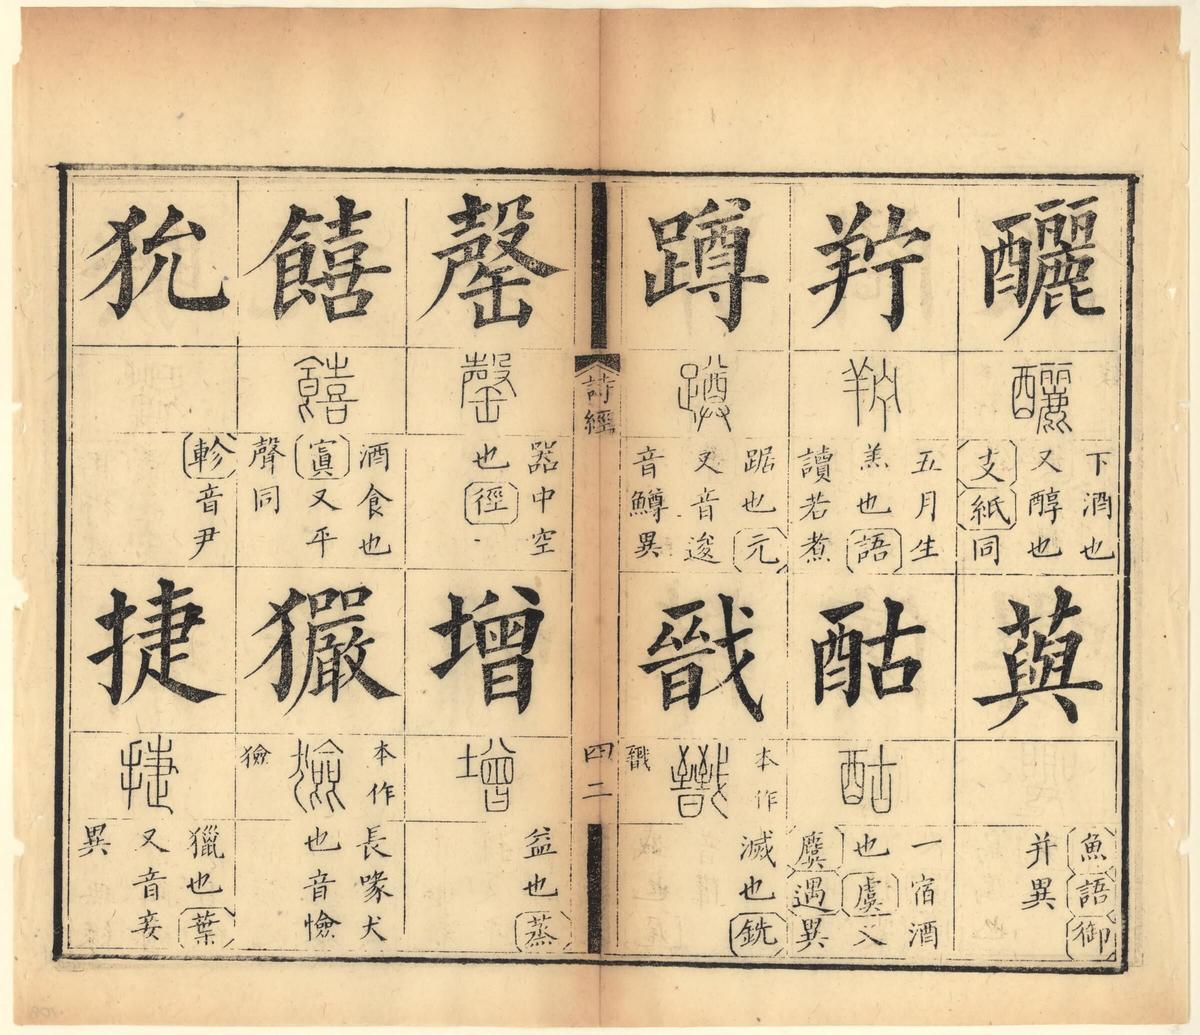 釃
釃
下酒也
又醇也
支紙同
藇
魚語御
并異
羜
羜
五月生
羔也語
讀若煮
酤
酤
一宿酒
也虞又
麌遇異
蹲
蹲
踞也元
又音逡
音鱒異
戩
本作
戩
戩
滅也銑
詩經
四二
罄
罄
器中空
也徑
增
增
益也
蒸
饎
饎
酒食也
寘又平
聲同
玁
本作
獫
獫
長喙犬
也音憸
狁
軫音尹
捷
捷
獵也葉
又音妾
異